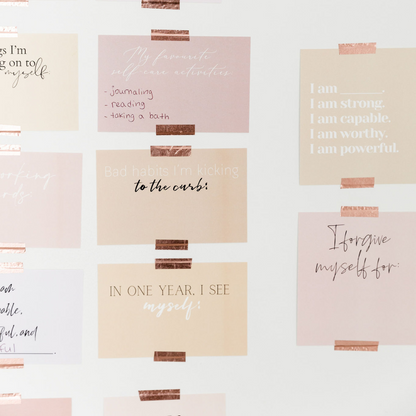 gs I'm
ng on to
myself
My favourite
self-care activities
- journaling
- reading
- taking a bath
I am ______,
I am strong.
I am capable.
I am worthy.
I am powerful.
Bad habits I'm kicking
to the curb:
I forgive
myself for:
am
able,
ful, and
IN ONE YEAR, I SEE
myself: